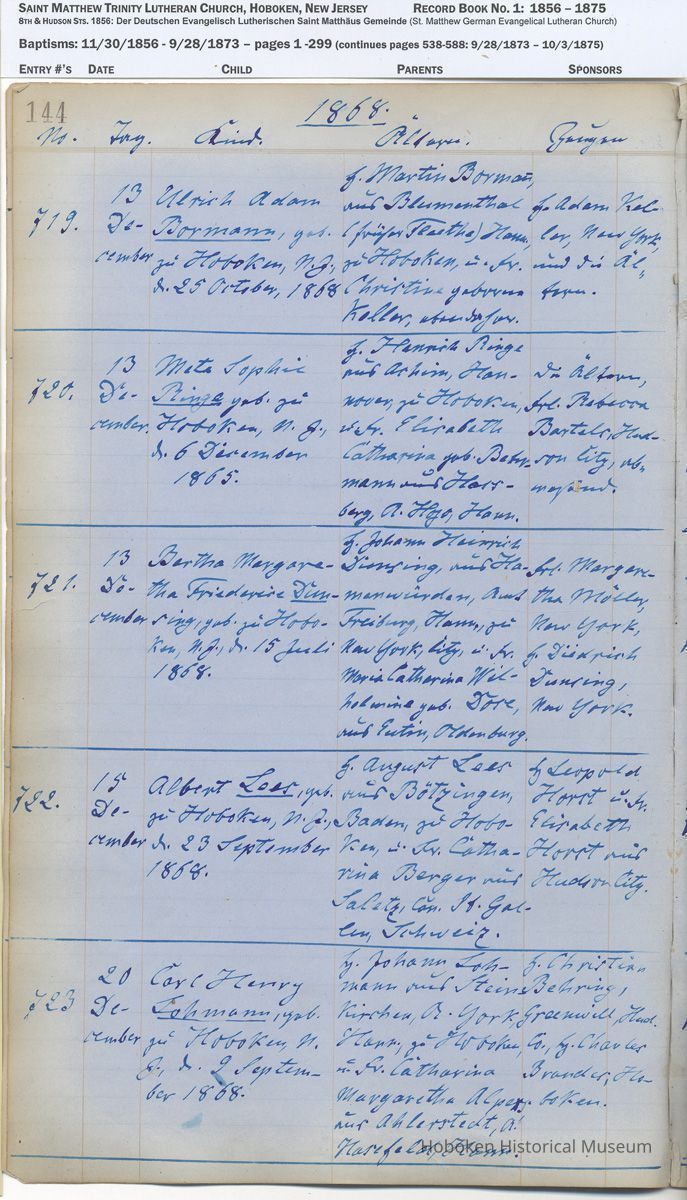 SAINT MATTHEW TRINITY LUTHERAN CHURCH, HOBOKEN, NEW JERSEY RECORD BOOK NO. 1: 1856 – 1875
8TH & HUDSON STS. 1856: Der Deutschen Evangelisch Lutherischen Saint Matthäus Gemeinde (St. Matthew German Evangelical Lutheran Church)
Baptisms: 11/30/1856 - 9/28/1873 – pages 1 -299 (continues pages 538-588: 9/28/1873 – 10/3/1875)
ENTRY #'S DATE CHILD PARENTS SPONSORS
144
1868.
No. Tag. Kind. Ältern. Zeugen
719.
13
De-
cember
Ulrich Adam
Bormann, geb.
zu Hoboken, N. J.,
d. 25 October, 1868
H. Martin Bormann,
aus Blumenthal
(früher Flethe) Hann.
zu Hoboken, u. Fr.
Christine geborene
Keller, ebendaher.
H. Adam Kel-
ler, New York,
und die Äl-
tern.
720.
13
De-
cember.
Meta Sophie
Ringe, geb. zu
Hoboken, N. J.,
d. 6 December
1865.
H. Heinrich Ringe
aus Achim, Han-
nover, zu Hoboken,
u. Fr. Elisabeth
Catharina geb. Behr-
mann aus Hass-
berg, A. Hann.
Die Ältern,
Frl. Rebecca
Bartels, Hud-
son City, ab-
wesend.
721.
13
De-
cember
Bertha Margare-
tha Friederice Dun-
sing, geb. zu Hobo-
ken, N. J., d. 15 Juli
1868.
H. Johann Heinrich
Dunsing, aus Ha-
manwürden, Amt
Freiburg, Hann., zu
New York, City, u. Fr.
Maria Catharina Wil-
helmine geb. Dose,
aus Eutin, Oldenburg.
Frl. Margare-
tha Möller,
New York,
H. Diedrich
Dunsing,
New York.
722.
15
De-
cember
Albert Lees, geb.
zu Hoboken, N. J.,
d. 23 September
1868.
H. August Lees
aus Bötzingen,
Baden, zu Hobo-
ken, u. Fr. Catha-
rina Berger aus
Saletz, Can. St. Gal-
len, Schweiz.
H. Leopold
Horst u. Fr.
Elisabeth
Horst aus
Hudson City.
723
20
De-
cember
Carl Henry
Lohmann, geb.
zu Hoboken, N.
J., d. 2 Septem-
ber 1868.
H. Johann Loh-
mann aus Stein-
kirchen, A. York,
Hann., zu Hoboken,
u. Fr. Catharina
Margaretha Alpers
aus Ahlerstedt, A.
Harsefeld, Hann.
H. Christian
Behring,
Greenvill, Hud.
Co., H. Charles
Brandes, Ho-
boken.
Hoboken Historical Museum